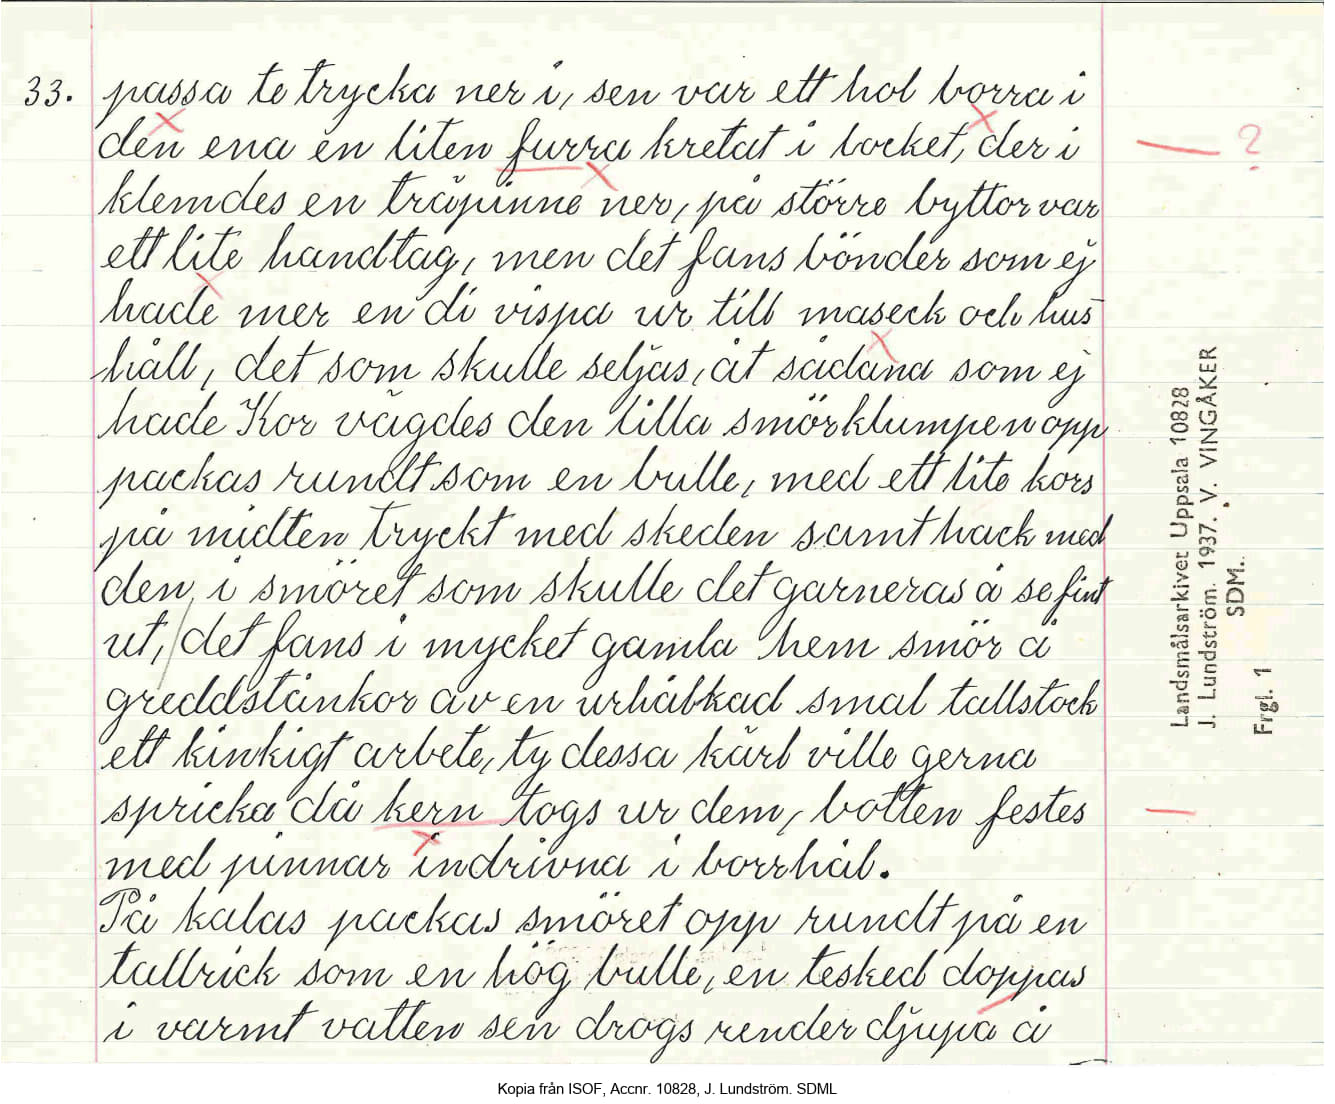 33. passa te trycka ner i, sen var ett hol borra i
den ena en liten furra kretat i locket, der i
klemdes en träpinne ner, på större byttor var
ett lite handtag, men det fans bönder som ej
hade mer en di vispa ur till maseck och hus
håll, det som skulle seljas, åt sådana som ej
hade Kor vägdes den lilla smörklumpen opp
packas rundt som en bulle, med ett lite kors
på midten tryckt med skeden samt hack med
den i smöret som skulle det garneras å se fint
ut, det fans i mycket gamla hem smör å
greddstånkor av en urhålkad smal tallstock
ett kinkigt arbete, ty dessa kärl ville gerna
spricka då kern togs ur dem, botten festes
med pinnar indrivna i borrhål.
På kalas packas smöret opp rundt på en
tallrick som en hög bulle, en tesked doppas
i varmt vatten sen drogs render djupa å
?
Landsmålsarkivet Uppsala 10828
J. Lundström. 1937. V. VINGÅKER
SDM.
Frgl. 1
Kopia från ISOF, Accnr. 10828, J. Lundström. SDML